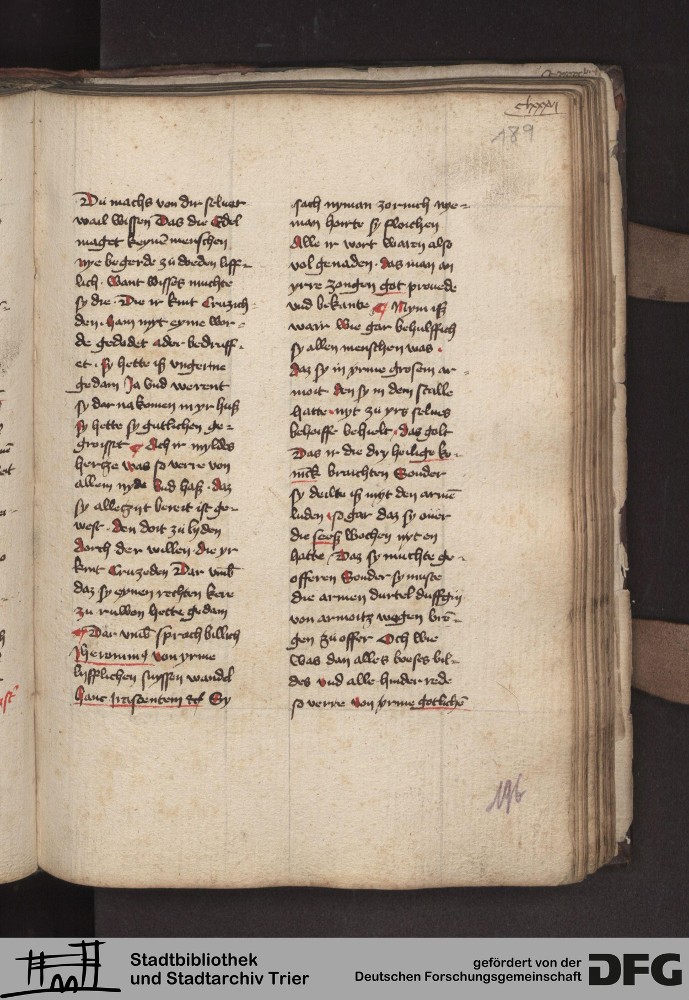 clxxxvi
189
Du machs von dir seluer
wail wissen Das die Edel
maget keynē menschen
nye begerde zu doeden liff-
lich · want wisses muchte
sy die · Die ir kint Cruzich-
den · ham nyt eyme wor-
de gedodet ader bedruff-
et · sy hette iß vngerne
gedam Ja vnd werent
sy dar na komen in yr huß
sy hette sy gutlichen ge-
groisset ¶ Ach ir myldes
hertze was so verre von
allem nyde vnd haß · daz
sy allezyt bereit ist ge-
west · den doit zu lyden
dorch der willen · die yr
kint Cruzoden Dar vmb
daz sy eynen rechten kere
zu ruwon hette gedam
¶ Dar vmb sprach billich
Jheronimus von yrme
lyfflichen suyssen wandel
hanc Sy
sach nyman zornich nye-
man horte sy floichen
Alle ir wort waren also
vol genaden · das man an
yrre zongen got proeuede
vnd bekante ¶ Nym iß
wair wie gar behulffich
sy allen menschen was ·
daz sy in yrme grosem ar-
moit · den sy in dem stalle
hatte · nyt zu yrs selues
behoiff behielt · das golt
Das ir die dry heilige ko-
nick brachten Sonder
sy deilte iß myt den armē
luden · so gar daz sy ouer
die seeß wochen nyt en
hatte Daz sy muchte ge-
offeren Sonder sy muste
die armen durtel duffgin
von armoitz wegen brē-
gen zu offer Och wie
was dan alles boeses bil-
des vnd alle hinder rede
so verre von yrme gotlichē
196
Stadtbibliothek
und Stadtarchiv Trier
gefördert von der
Deutschen Forschungsgemeinschaft
DFG